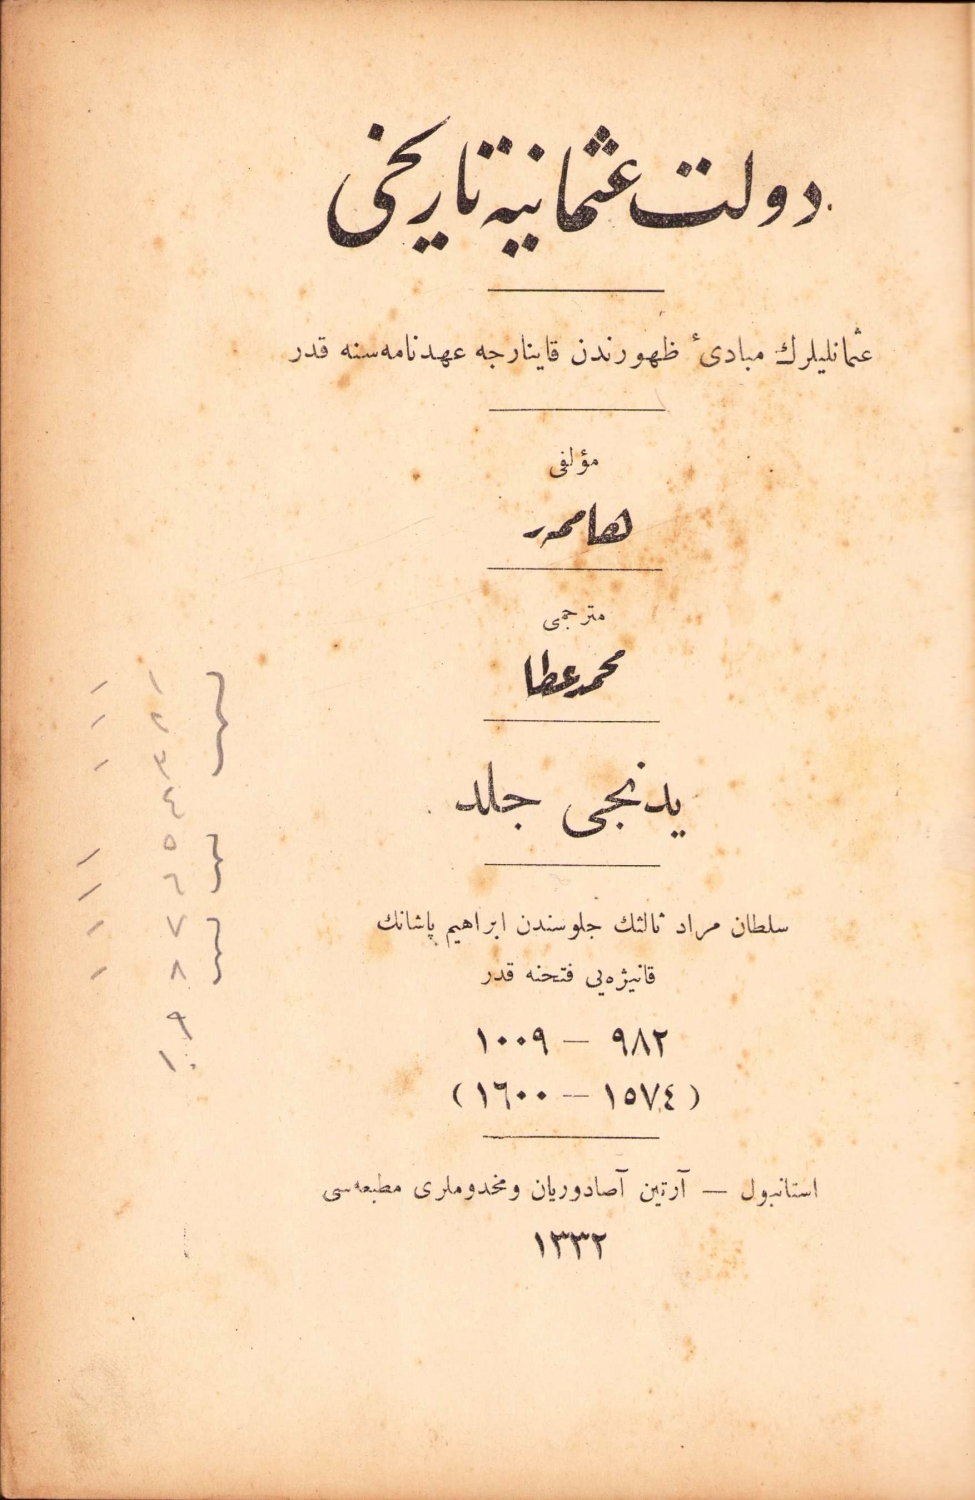 دولت عثمانیه تاریخی
عثمانلیلرك مبادیٔ ظهورندن قاینارجه عهدنامه‌سنه قدر
مؤلفی
هاممه‌ر
مترجمی
محمد عطا
یدنجی جلد
سلطان مراد ثالثك جلوسندن ابراهیم پاشانك
قانیژه‌یی فتحنه قدر
٩٨٢ — ١٠٠٩
(١٥٧٤ — ١٦٠٠)
استانبول — آرتین آصادوریان ومخدوملری مطبعه‌سی
١٣٣٢
١
٢
٣
٤
٥
٦
٧
٨
٩
١٠